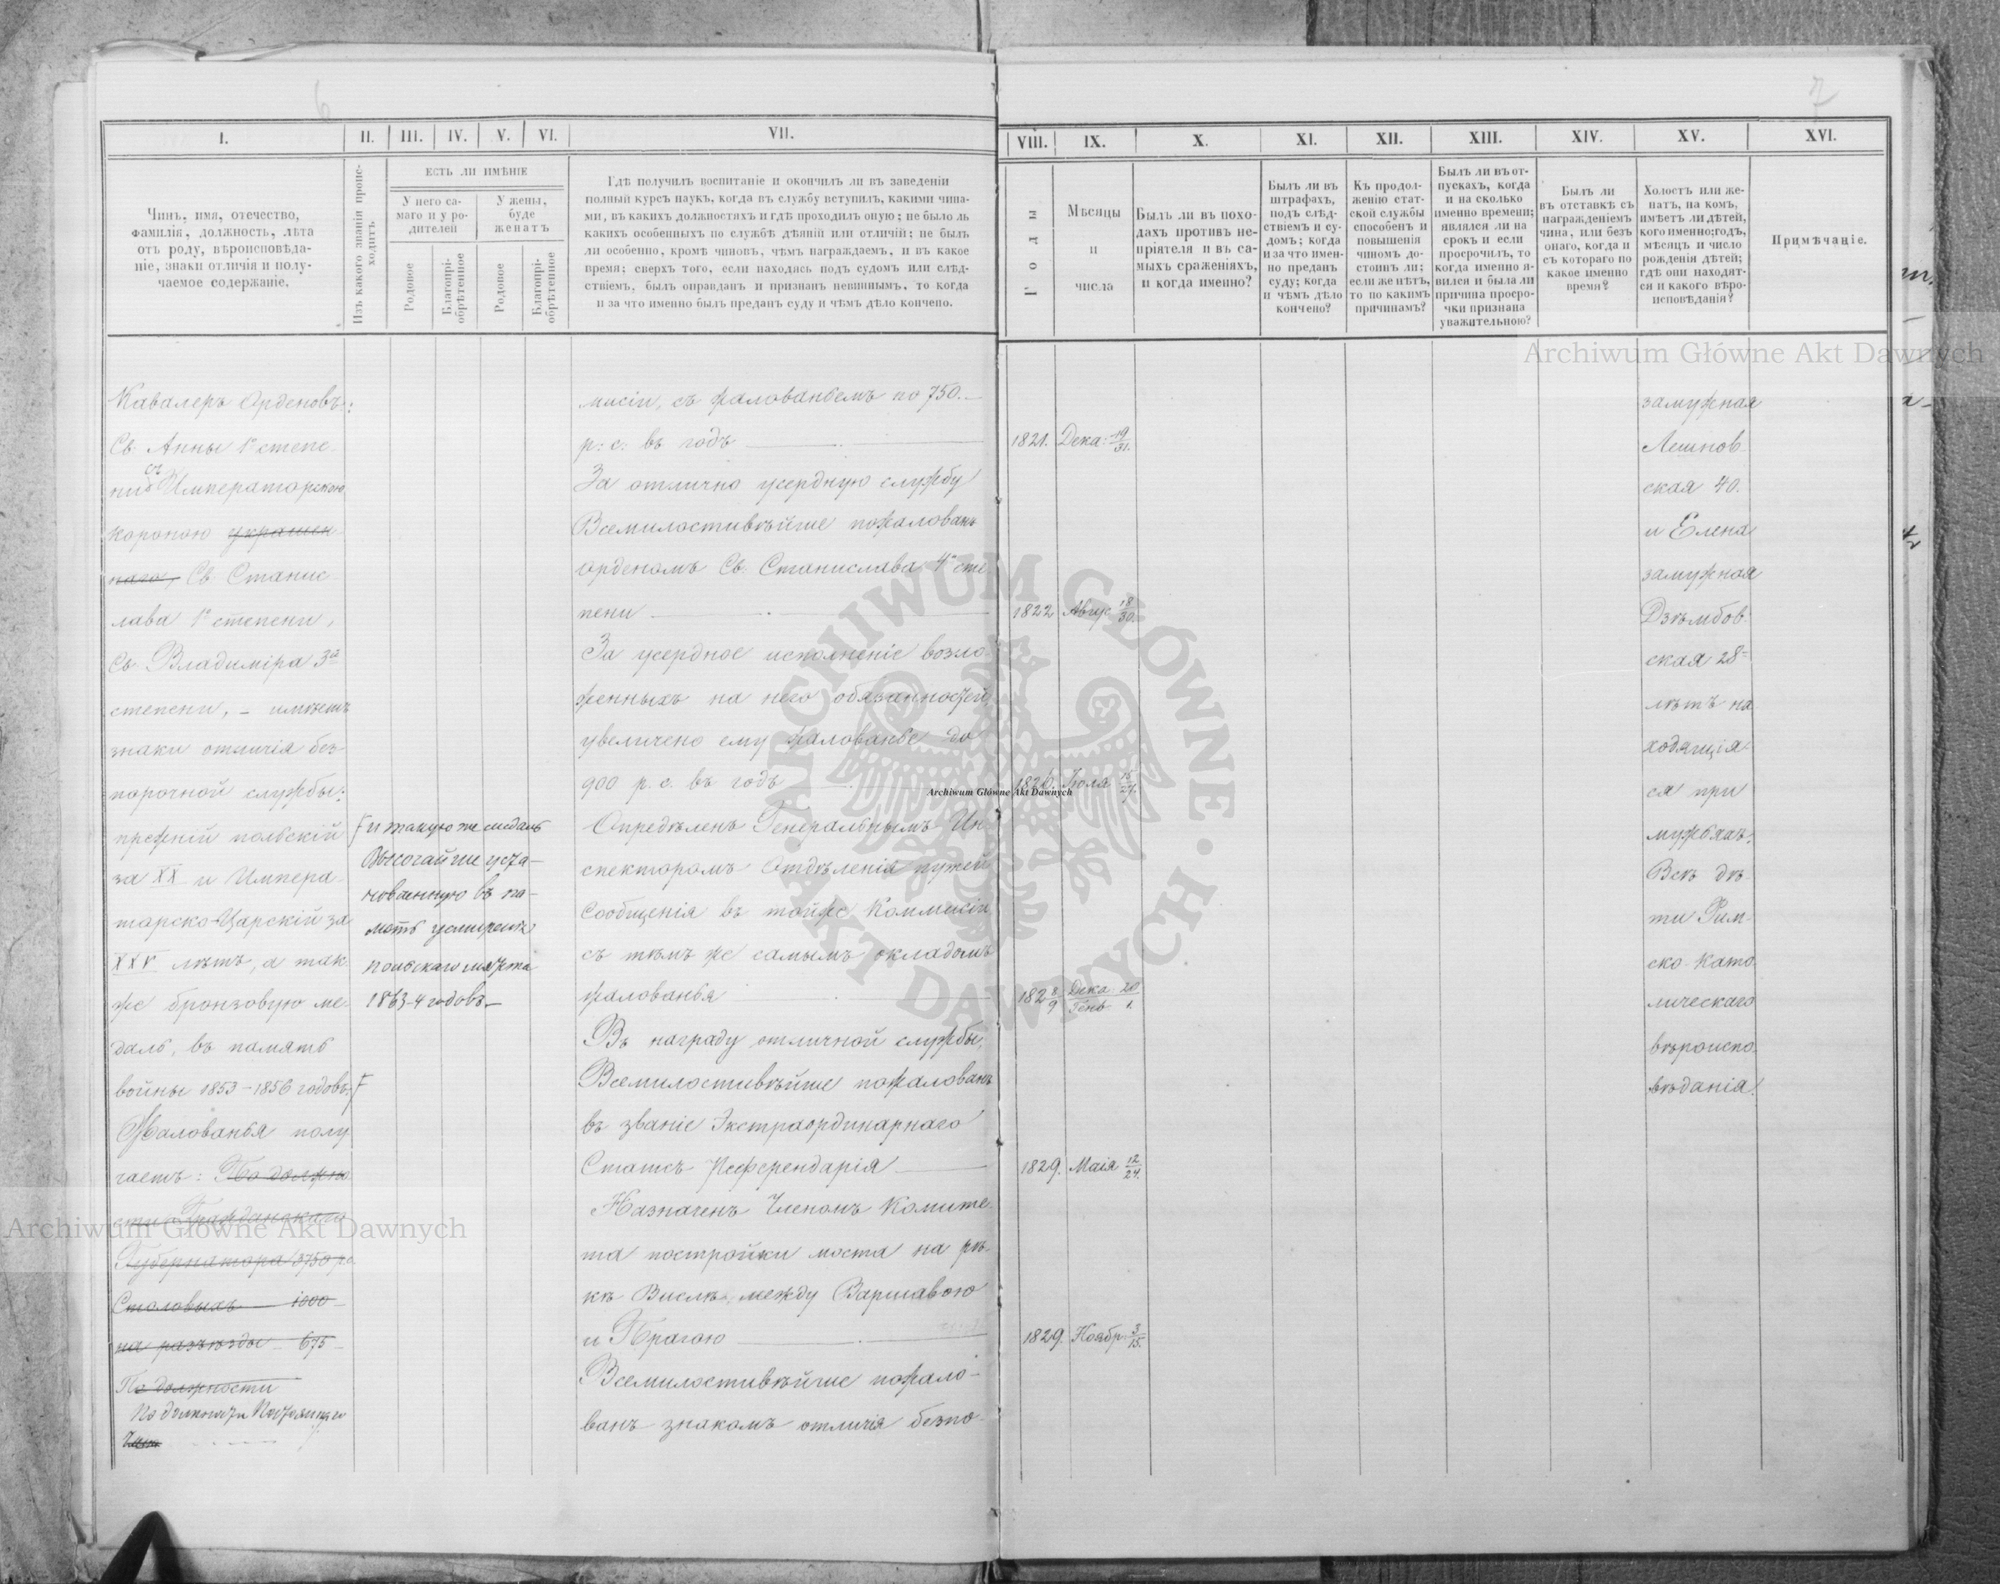 6
7
I.
II.
III.
IV.
V.
VI.
VII.
VIII.
IX.
X.
XI.
XII.
XIII.
XIV.
XV.
XVI.
Чинъ, имя, отечество,
фамилія, должность, лѣта
отъ роду, вѣроисповѣда-
ніе, знаки отличія и полу-
чаемое содержаніе.
Изъ какого званія проис-
ходитъ.
ЕСТЬ ЛИ ИМѢНІЕ
У него са-
маго и у ро-
дителей
У жены,
буде
женатъ
Родовое
Благопрі-
обрѣтенное
Родовое
Благопрі-
обрѣтенное
Гдѣ получилъ воспитаніе и окончилъ ли въ заведеніи
полный курсъ наукъ, когда въ службу вступилъ, какими чина-
ми, въ какихъ должностяхъ и гдѣ проходилъ оную; не было ль
какихъ особенныхъ по службѣ дѣяній или отличій; не былъ
ли особенно, кромѣ чиновъ, чѣмъ награждаемъ, и въ какое
время; сверхъ того, если находясь подъ судомъ или слѣд-
ствіемъ, былъ оправданъ и признанъ невиннымъ, то когда
и за что именно былъ преданъ суду и чѣмъ дѣло кончено.
Годы
Мѣсяцы
и
числа
Былъ ли въ похо-
дахъ противъ не-
пріятеля и въ са-
мыхъ сраженіяхъ,
и когда именно?
Былъ ли въ
штрафахъ,
подъ слѣд-
ствіемъ и су-
домъ; когда
и за что имен-
но преданъ
суду; когда
и чѣмъ дѣло
кончено?
Къ продол-
женію стат-
ской службы
способенъ и
повышенія
чиномъ до-
стоинъ ли;
если же нѣтъ,
то по какимъ
причинамъ?
Былъ ли въ от-
пускахъ, когда
и на сколько
именно времени;
являлся ли на
срокъ и если
просрочилъ, то
когда именно я-
вился и была ли
причина просро-
чки признана
уважительною?
Былъ ли
въ отставкѣ съ
награжденіемъ
чина, или безъ
онаго, когда и
съ котораго по
какое именно
время?
Холостъ или же-
натъ, на комъ,
имѣетъ ли дѣтей,
кого именно; годъ,
мѣсяцъ и число
рожденія дѣтей;
гдѣ они находят-
ся и какого вѣро-
исповѣданія?
Примѣчаніе.
Кавалеръ Орденовъ:
Св. Анны 1й степе-
ни съ Императорскою
короною украшен-
наго, Св. Станис
лава 1й степени,
Св. Владиміра 3й
степени, – имѣетъ
знаки отличія без-
порочной службы:
прежній польскій
за XX и Импера-
торско-Царскій за
XXV лѣтъ, а так
же бронзовую ме-
даль, въ память
войны 1853-1856 годовъ
Жалованья полу
чаетъ: По должно
сти Гражданскаго
Губернатора 3750 р.
Столовыхъ 1000
на разъѣзды 675
По должности
По должности
и такую же медаль
Высочайше уста-
новленную въ па-
мять усмиренія
польскаго мятежа
1863-4 годовъ
мисіи, съ жалованьемъ по 750.
р. с. въ годъ
За отлично усердную службу
Всемилостивѣйше пожалованъ
орденомъ Св. Станислава 4й сте
пени
За усердное исполненіе возло
женныхъ на него обязанностей,
увеличено ему жалованье до
900 р. с. въ годъ
Опредѣленъ Генеральнымъ Ин
спекторомъ Отдѣленія путей
Сообщенія въ тойже Коммисіи
съ тѣмъ же самымъ окладомъ
жалованья
Въ награду отличной службы,
Всемилостивѣйше пожалованъ
въ званіе Экстраординарнаго
Статсъ Референдарія
Назначенъ Членомъ Комите-
та постройки моста на рѣ-
кѣ Вислѣ, между Варшавою
и Прагою
Всемилостивѣйше пожало-
ванъ знакомъ отличія безпо-
1821. Дека: 19/31.
1822 Авгус 18/30.
1826. Іюля 15/27.
1828/9 Дека 20/Генв 1.
1829. Маія 12/24.
1829. Ноябр. 3/15.
замужная
Лешнов-
ская 40.
и Елена
замужная
Дзѣмбов-
ская 28-
лѣтъ на
ходящія
ся при
мужьяхъ.
Всѣ дѣ-
ти Рим-
ско-Като
лическаго
вѣроиспо-
вѣданія.
Archiwum Główne Akt Dawnych
Archiwum Główne Akt Dawnych
Archiwum Główne Akt Dawnych
ARCHIWUM GŁÓWNE AKT DAWNYCH